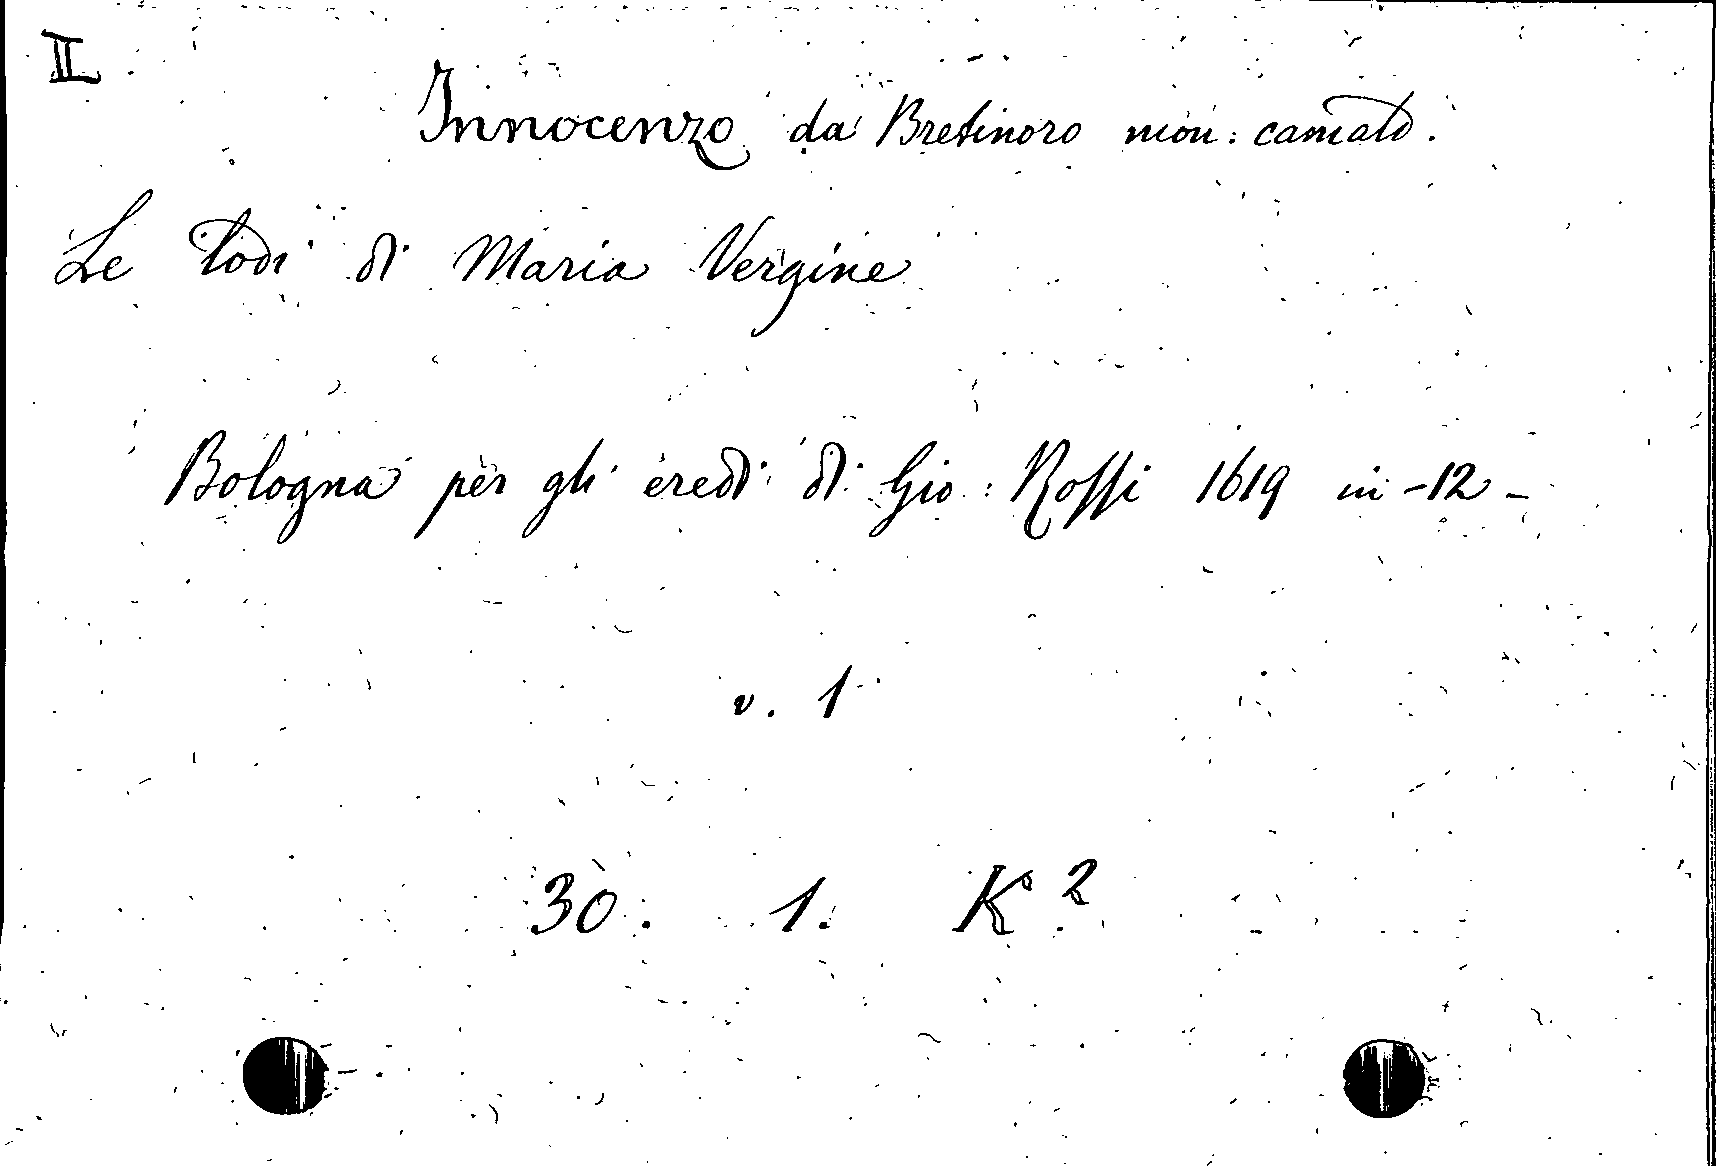 II
Innocenzo da Bretinoro mon: camald.
Le lodi di Maria Vergine
Bologna per gli eredi di Gio: Rossi 1619 in -12-
v. 1
30. 1. K 2